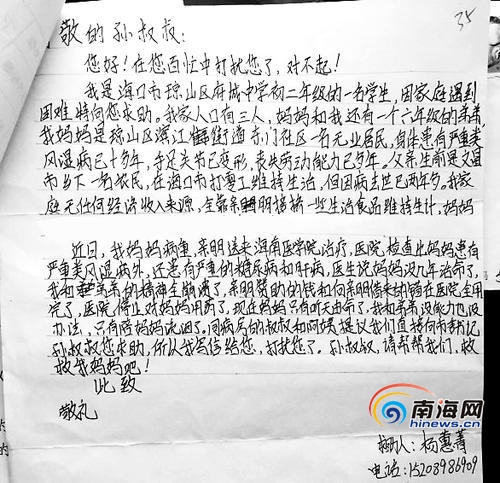 35
敬的孙叔叔：
您好！在您百忙中打扰您了，对不起！
我是海口市琼山区府城中学初二年级的一名学生，因家庭遇到
困难特向您求助。我家人口有三人，妈妈和我还有一个六年级的弟弟
我妈妈是琼山区滨江街道东门社区一名无业居民，身体患有严重类
风湿病已十多年，手足关节已变形，丧失劳动能力已多年。父亲生前是文昌
市乡下一名农民，在海口市打零工维持生活，但因病去世已两年多。我家
庭无任何经济收入来源，全靠亲朋接济一些生活食品维持生计，妈妈
近日，我妈妈病重，亲朋送来海南医学院治疗，医院检查出妈妈患有
严重类风湿病外，还患有严重的糖尿病和肝病，医生说妈妈没几年活命了，
我和弟弟的精神全崩溃了，亲朋赞助的钱和向亲朋借来的钱在医院全用
完了，医院停止对妈妈用药了，现在妈妈只有听天由命了，我和弟弟没能力也没
办法，只有陪妈妈流泪了。同病房的叔叔和阿姨提议我们直接向市书记
孙叔叔您求助，所以我写信给您，打扰您了。孙叔叔，请帮帮我们，救
救我妈妈吧！
此致
敬礼
南海网
hinews.cn
杨惠菁
电话：15203986909